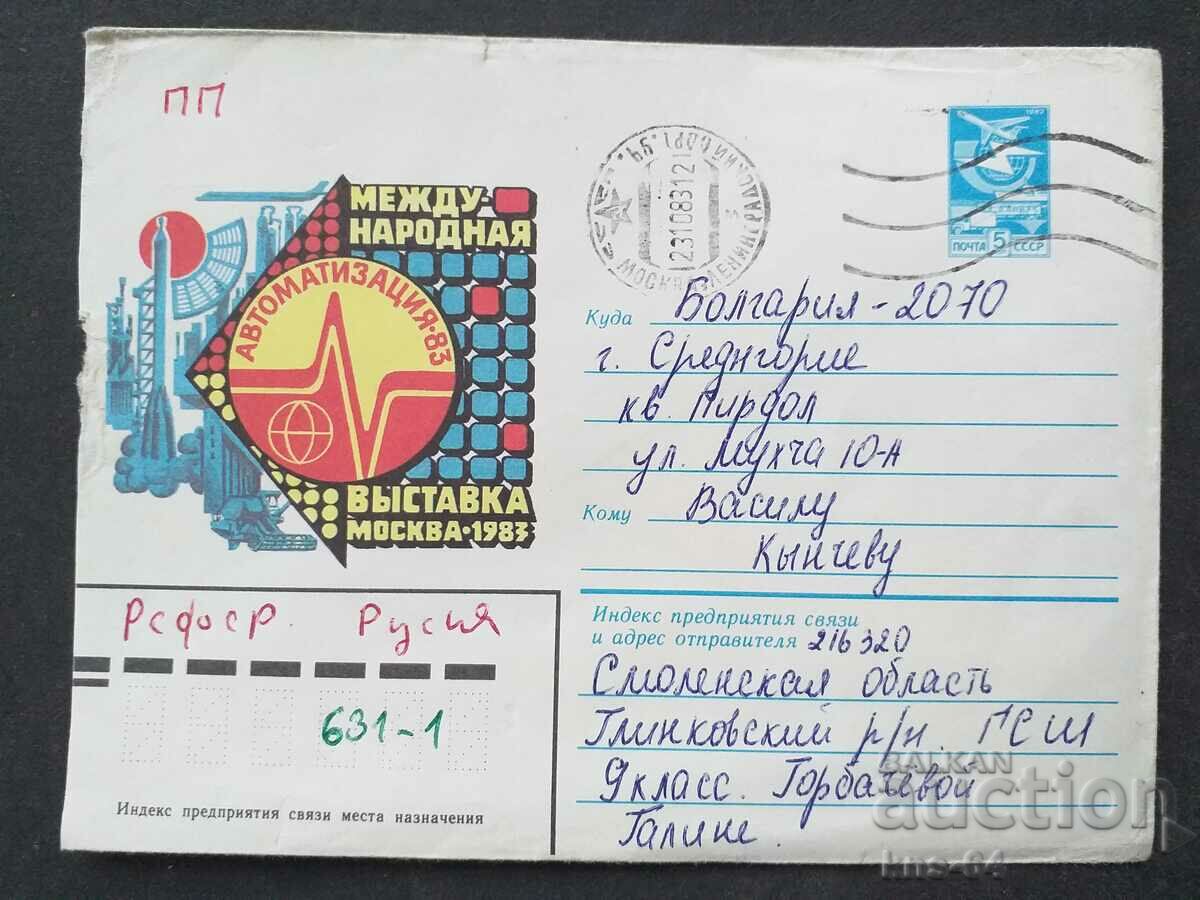 ПП
МЕЖДУ-
НАРОДНАЯ
АВТОМАТИЗАЦИЯ·83
ВЫСТАВКА
МОСКВА·1983
МОСКВА
ЛЕНИНГРАДСКИЙ
23108312
1982
ПОЧТА 5 СССР
Куда Болгария-2070
г. Среднгорие
кв. Пирдол
ул. Мухча 10-А
Кому Василу
Кынчеву
Индекс предприятия связи
и адрес отправителя 216320
Смоленская область
Глинковский р/н. ГСШ
9 класс. Горбачевой
Галине.
Рсфоср. Русия
631-1
Индекс предприятия связи места назначения
BALKAN
auction
kns-64